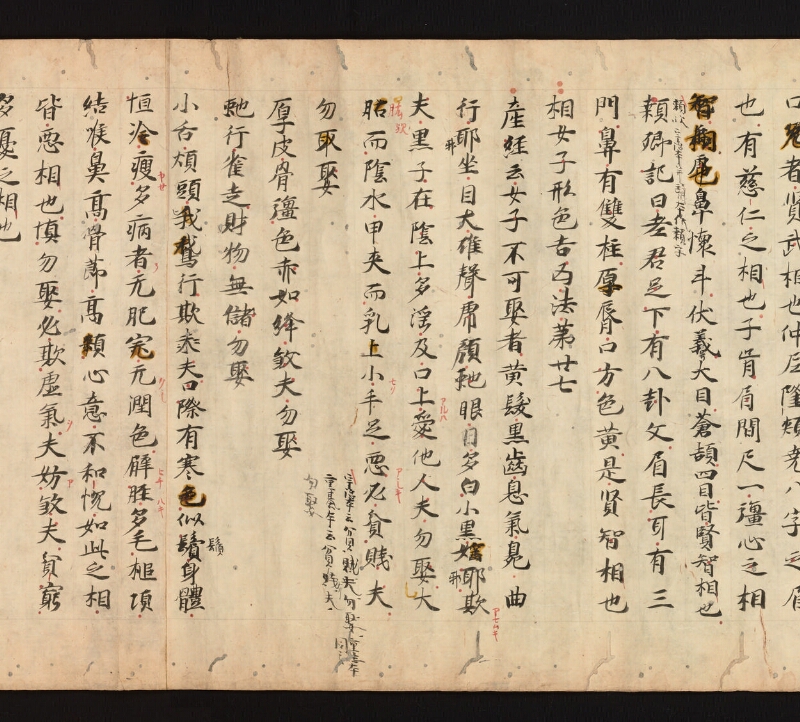 者贤武相也仲尼隆顙尭八字之眉
也有慈仁之相也子胥眉間尺一彊心之相
鼻懷斗伏羲大目蒼頡四目皆賢智相也
頼卿記曰老君足下有八卦文眉長耳有三
門鼻有雙柱厚脣口方色黄是贤智相也
相女子形色吉凶法第廿七
産経云女子不可娶者黄髮黒齒息氣臭曲
行耶坐目大雄聲虎顔虵眼目多白小黒婬耶欺
夫黒子在陰上多淫及口上愛他人夫勿娶大
而陰水甲夾而乳上小手足悪必貧賤夫
勿取娶
厚皮骨彊色赤如絳煞夫勿娶
虵行雀走財物無儲勿娶
小舌煩頭我鵞行欺夫口際有寒色似鬚身體
鬚
恒冷瘦多病者无肥完无潤色臂脛多毛槌項
結喉鼻高骨莭高顙心意不和悦如此之相
皆悪相也慎勿娶必欺虚氣夫妨煞夫貧窮
多憂之相也